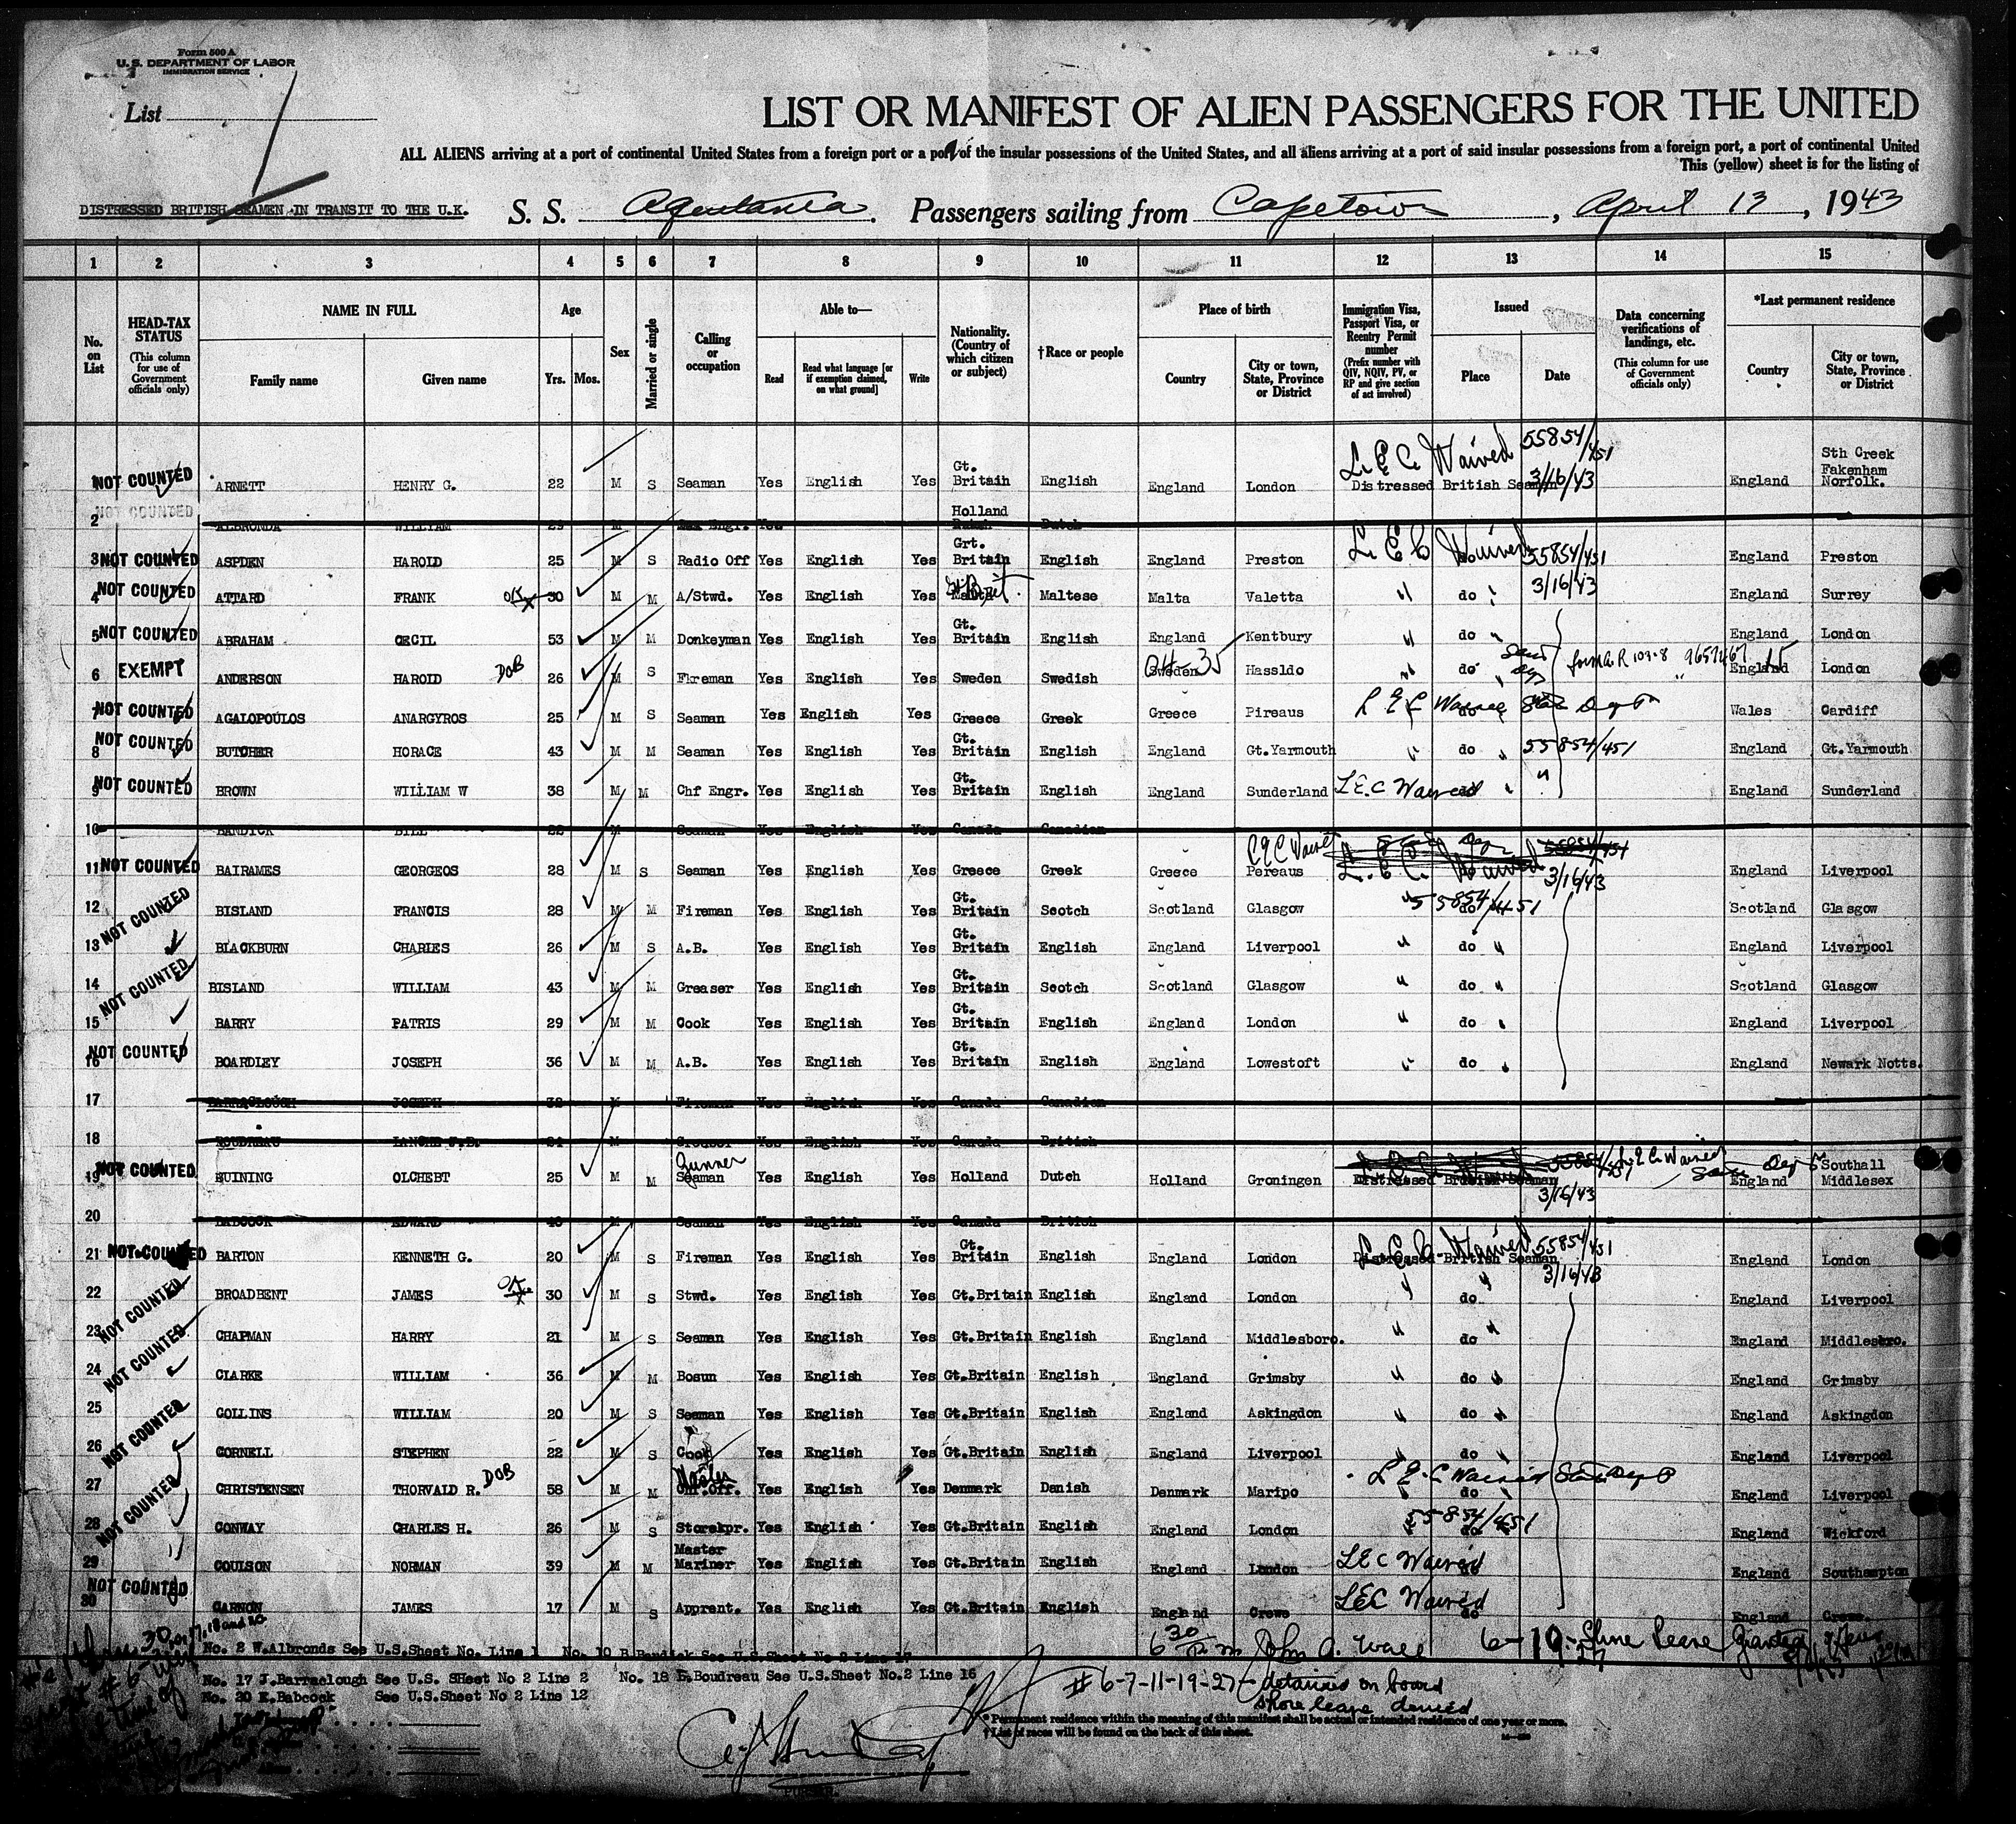 Form 500 A
U. S. DEPARTMENT OF LABOR
IMMIGRATION SERVICE
List 1
LIST OR MANIFEST OF ALIEN PASSENGERS FOR THE UNITED
ALL ALIENS arriving at a port of continental United States from a foreign port or a port of the insular possessions of the United States, and all aliens arriving at a port of said insular possessions from a foreign port, a port of continental United
This (yellow) sheet is for the listing of
DISTRESSED BRITISH SEAMEN IN TRANSIT TO THE U.K. S. S. Aquitania. Passengers sailing from Capetown, April 13, 1943
1 2 3 4 5 6 7 8 9 10 11 12 13 14 15
No. on List HEAD-TAX STATUS (This column for use of Government officials only) NAME IN FULL Family name Given name Age Yrs. Mos. Sex Married or single Calling or occupation Able to— Read Read what language [or if exemption claimed, on what ground] Write Nationality. (Country of which citizen or subject) †Race or people Place of birth Country City or town, State, Province or District Immigration Visa, Passport Visa, or Reentry Permit number (Prefix number with QIV, NQIV, PV, or RP and give section of act involved) Issued Place Date Data concerning verifications of landings, etc. (This column for use of Government officials only) *Last permanent residence Country City or town, State, Province or District
1 NOT COUNTED ARNETT HENRY G. 22 M S Seaman Yes English Yes Gt. Britain English England London L.E.C. Waived 55854/451 Distressed British Seaman 3/16/43 England Sth Creek Fakenham Norfolk.
2 NOT COUNTED ALBRONDA WILLIAM 29 M Engr. Yes Holland Dutch Dutch
3 NOT COUNTED ASPDEN HAROLD 25 M S Radio Off Yes English Yes Grt. Britain English England Preston L.E.C Waived 55854/451 England Preston
4 NOT COUNTED ATTARD FRANK OK 30 M M A/Stwd. Yes English Yes Gt Brit. Malta Maltese Malta Valetta " do " 3/16/43 England Surrey
5 NOT COUNTED ABRAHAM CECIL 53 M M Donkeyman Yes English Yes Gt. Britain English England Kentbury " do " England London
6 EXEMPT ANDERSON HAROLD DOB 26 M S Fireman Yes English Yes Sweden Swedish Sweden Hassldo " do " England London
7 NOT COUNTED AGALOPOULOS ANARGYROS 25 M S Seaman Yes English Yes Greece Greek Greece Pireaus L E C Waived State Dept Wales Cardiff
8 NOT COUNTED BUTCHER HORACE 43 M M Seaman Yes English Yes Gt. Britain English England Gt.Yarmouth " do " 55854/451 England Gt.Yarmouth
9 NOT COUNTED BROWN WILLIAM W 38 M M Chf Engr. Yes English Yes Gt. Britain English England Sunderland L.E.C Waived " England Sunderland
10 BANDICK BILL M Seaman Yes English Yes Canada Canadian
11 NOT COUNTED BAIRAMES GEORGEOS 28 M S Seaman Yes English Yes Greece Greek Greece Pereaus L.E.C. Waived 3/16/43 England Liverpool
12 NOT COUNTED BISLAND FRANCIS 28 M M Fireman Yes English Yes Gt. Britain Scotch Scotland Glasgow " 55854/451 do Scotland Glasgow
13 BLACKBURN CHARLES 26 M S A.B. Yes English Yes Gt. Britain English England Liverpool " do " England Liverpool
14 NOT COUNTED BISLAND WILLIAM 43 M M Greaser Yes English Yes Gt. Britain Scotch Scotland Glasgow " do " Scotland Glasgow
15 BARRY PATRIS 29 M M Cook Yes English Yes Gt. Britain English England London " do " England Liverpool
16 NOT COUNTED BOARDLEY JOSEPH 36 M M A.B. Yes English Yes Gt. Britain English England Lowestoft " do " England Newark Notts.
17 BARRACLOUGH JOSEPH M Fireman Yes English Yes Canada Canadian
18 BOUDREAU M Yes English Yes Canada British
19 NOT COUNTED BUINING OLCHEBT 25 M M Gunner Seaman Yes English Yes Holland Dutch Holland Groningen Distressed British Seaman 3/16/43 L.E.C. Waived England Southall Middlesex
20 BABCOCK EDWARD 40 M Seaman Yes English Yes Canada British
21 NOT COUNTED BARTON KENNETH G. 20 M S Fireman Yes English Yes Gt. Britain English England London L.E.C. Waived 55854/451 Distressed British Seaman 3/16/43 England London
22 NOT COUNTED BROADBENT JAMES OK 30 M S Stwd. Yes English Yes Gt.Britain English England London " do " England Liverpool
23 CHAPMAN HARRY 21 M S Seaman Yes English Yes Gt.Britain English England Middlesboro. " do " England Middlesbro.
24 NOT COUNTED CLARKE WILLIAM 36 M M Bosun Yes English Yes Gt.Britain English England Grimsby " do " England Grimsby
25 COLLINS WILLIAM 20 M S Seaman Yes English Yes Gt.Britain English England Askingdon " do " England Askingdon
26 NOT COUNTED CORNELL STEPHEN 22 M S Cook Yes English Yes Gt.Britain English England Liverpool " do " England Liverpool
27 CHRISTENSEN THORVALD R. DOB 58 M M Master Chf.Off. Yes English Yes Denmark Danish Denmark Maripo L.E.C Waived State Dept do England Liverpool
28 NOT COUNTED CONWAY CHARLES H. 26 M S Storekpr. Yes English Yes Gt.Britain English England London 55854/451 do England Wickford
29 COULSON NORMAN 39 M M Master Mariner Yes English Yes Gt.Britain English England London LEC Waived do England Southampton
30 NOT COUNTED CARNON JAMES 17 M S Apprent. Yes English Yes Gt.Britain English England Crewe LEC Waived do England Crewe.
No. 2 W.Albronds See U.S.Sheet No. Line 1 No. 10 B Bandick See U.S.Sheet No 2 Line 17
6 30 John A. Wall 6-10- Shore Leave Granted
No. 17 J.Barraclough See U.S. SHeet No 2 Line 2 No. 18 E.Boudreau See U.S.Sheet No.2 Line 16
No. 20 E.Babcock See U.S.Sheet No 2 Line 12
#6-7-11-19-27- detained on board
shore leave denied
*Permanent residence within the meaning of this manifest shall be actual or intended residence of one year or more.
†List of races will be found on the back of this sheet.